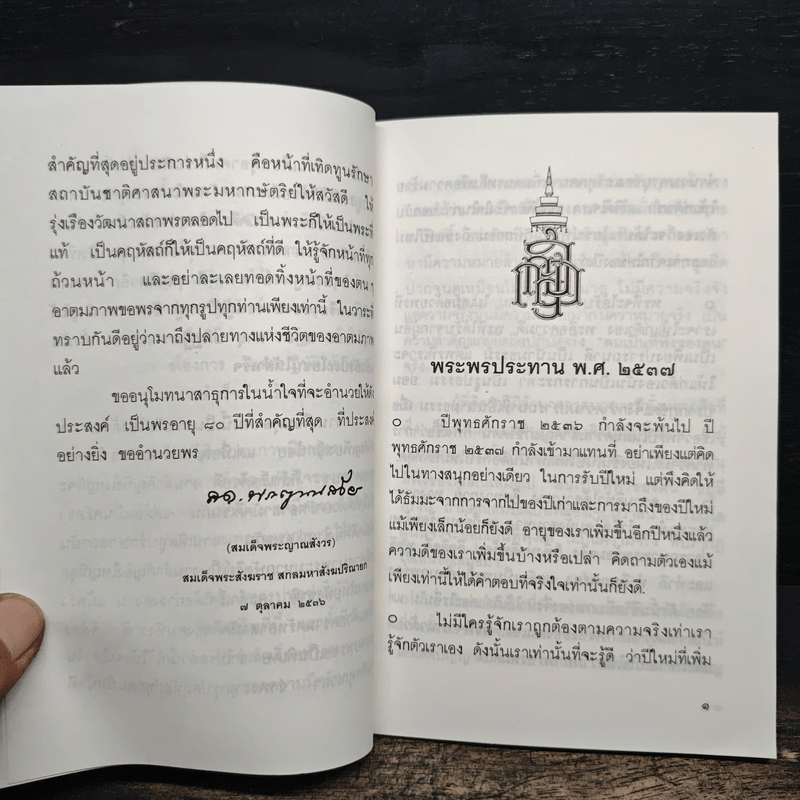 สำคัญที่สุดอยู่ประการหนึ่ง คือหน้าที่เทิดทูนรักษา
สถาบันชาติศาสนาพระมหากษัตริย์ให้สวัสดี ให้
รุ่งเรืองวัฒนาสถาพรตลอดไป เป็นพระก็ให้เป็นพระที่
แท้ เป็นคฤหัสถ์ก็ให้เป็นคฤหัสถ์ที่ดี ให้รู้จักหน้าที่ทุก
ถ้วนหน้า และอย่าละเลยทอดทิ้งหน้าที่ของตน ๆ
อาตมภาพขอพรจากทุกรูปทุกท่านเพียงเท่านี้ ในวาระที่
ทราบกันดีอยู่ว่ามาถึงปลายทางแห่งชีวิตของอาตมภาพ
แล้ว
ขออนุโมทนาสาธุการในน้ำใจที่จะอำนวยให้
ประสงค์ เป็นพรอายุ ๘๐ ปีที่สำคัญที่สุด ที่ประสงค์
อย่างยิ่ง ขออำนวยพร
(สมเด็จพระญาณสังวร)
สมเด็จพระสังฆราช สกลมหาสังฆปริณายก
๗ ตุลาคม ๒๕๓๖
พระพรประทาน พ.ศ. ๒๕๓๗
๐ ปีพุทธศักราช ๒๕๓๖ กำลังจะพ้นไป ปี
พุทธศักราช ๒๕๓๗ กำลังเข้ามาแทนที่ อย่าเพียงแต่คิด
ไปในทางสนุกอย่างเดียว ในการรับปีใหม่ แต่พึงคิดให้
ได้ธัมมะจากการจากไปของปีเก่าและการมาถึงของปีใหม่
แม้เพียงเล็กน้อยก็ยังดี อายุของเราเพิ่มขึ้นอีกปีหนึ่งแล้ว
ความดีของเราเพิ่มขึ้นบ้างหรือเปล่า คิดถามตัวเองแม้
เพียงเท่านี้ให้ได้คำตอบที่จริงใจเท่านั้นก็ยังดี.
๐ ไม่มีใครรู้จักเราถูกต้องตามความจริงเท่าเรา
รู้จักตัวเราเอง ดังนั้นเราเท่านั้นที่จะรู้ดี ว่าปีใหม่ที่เพิ่ม
๑